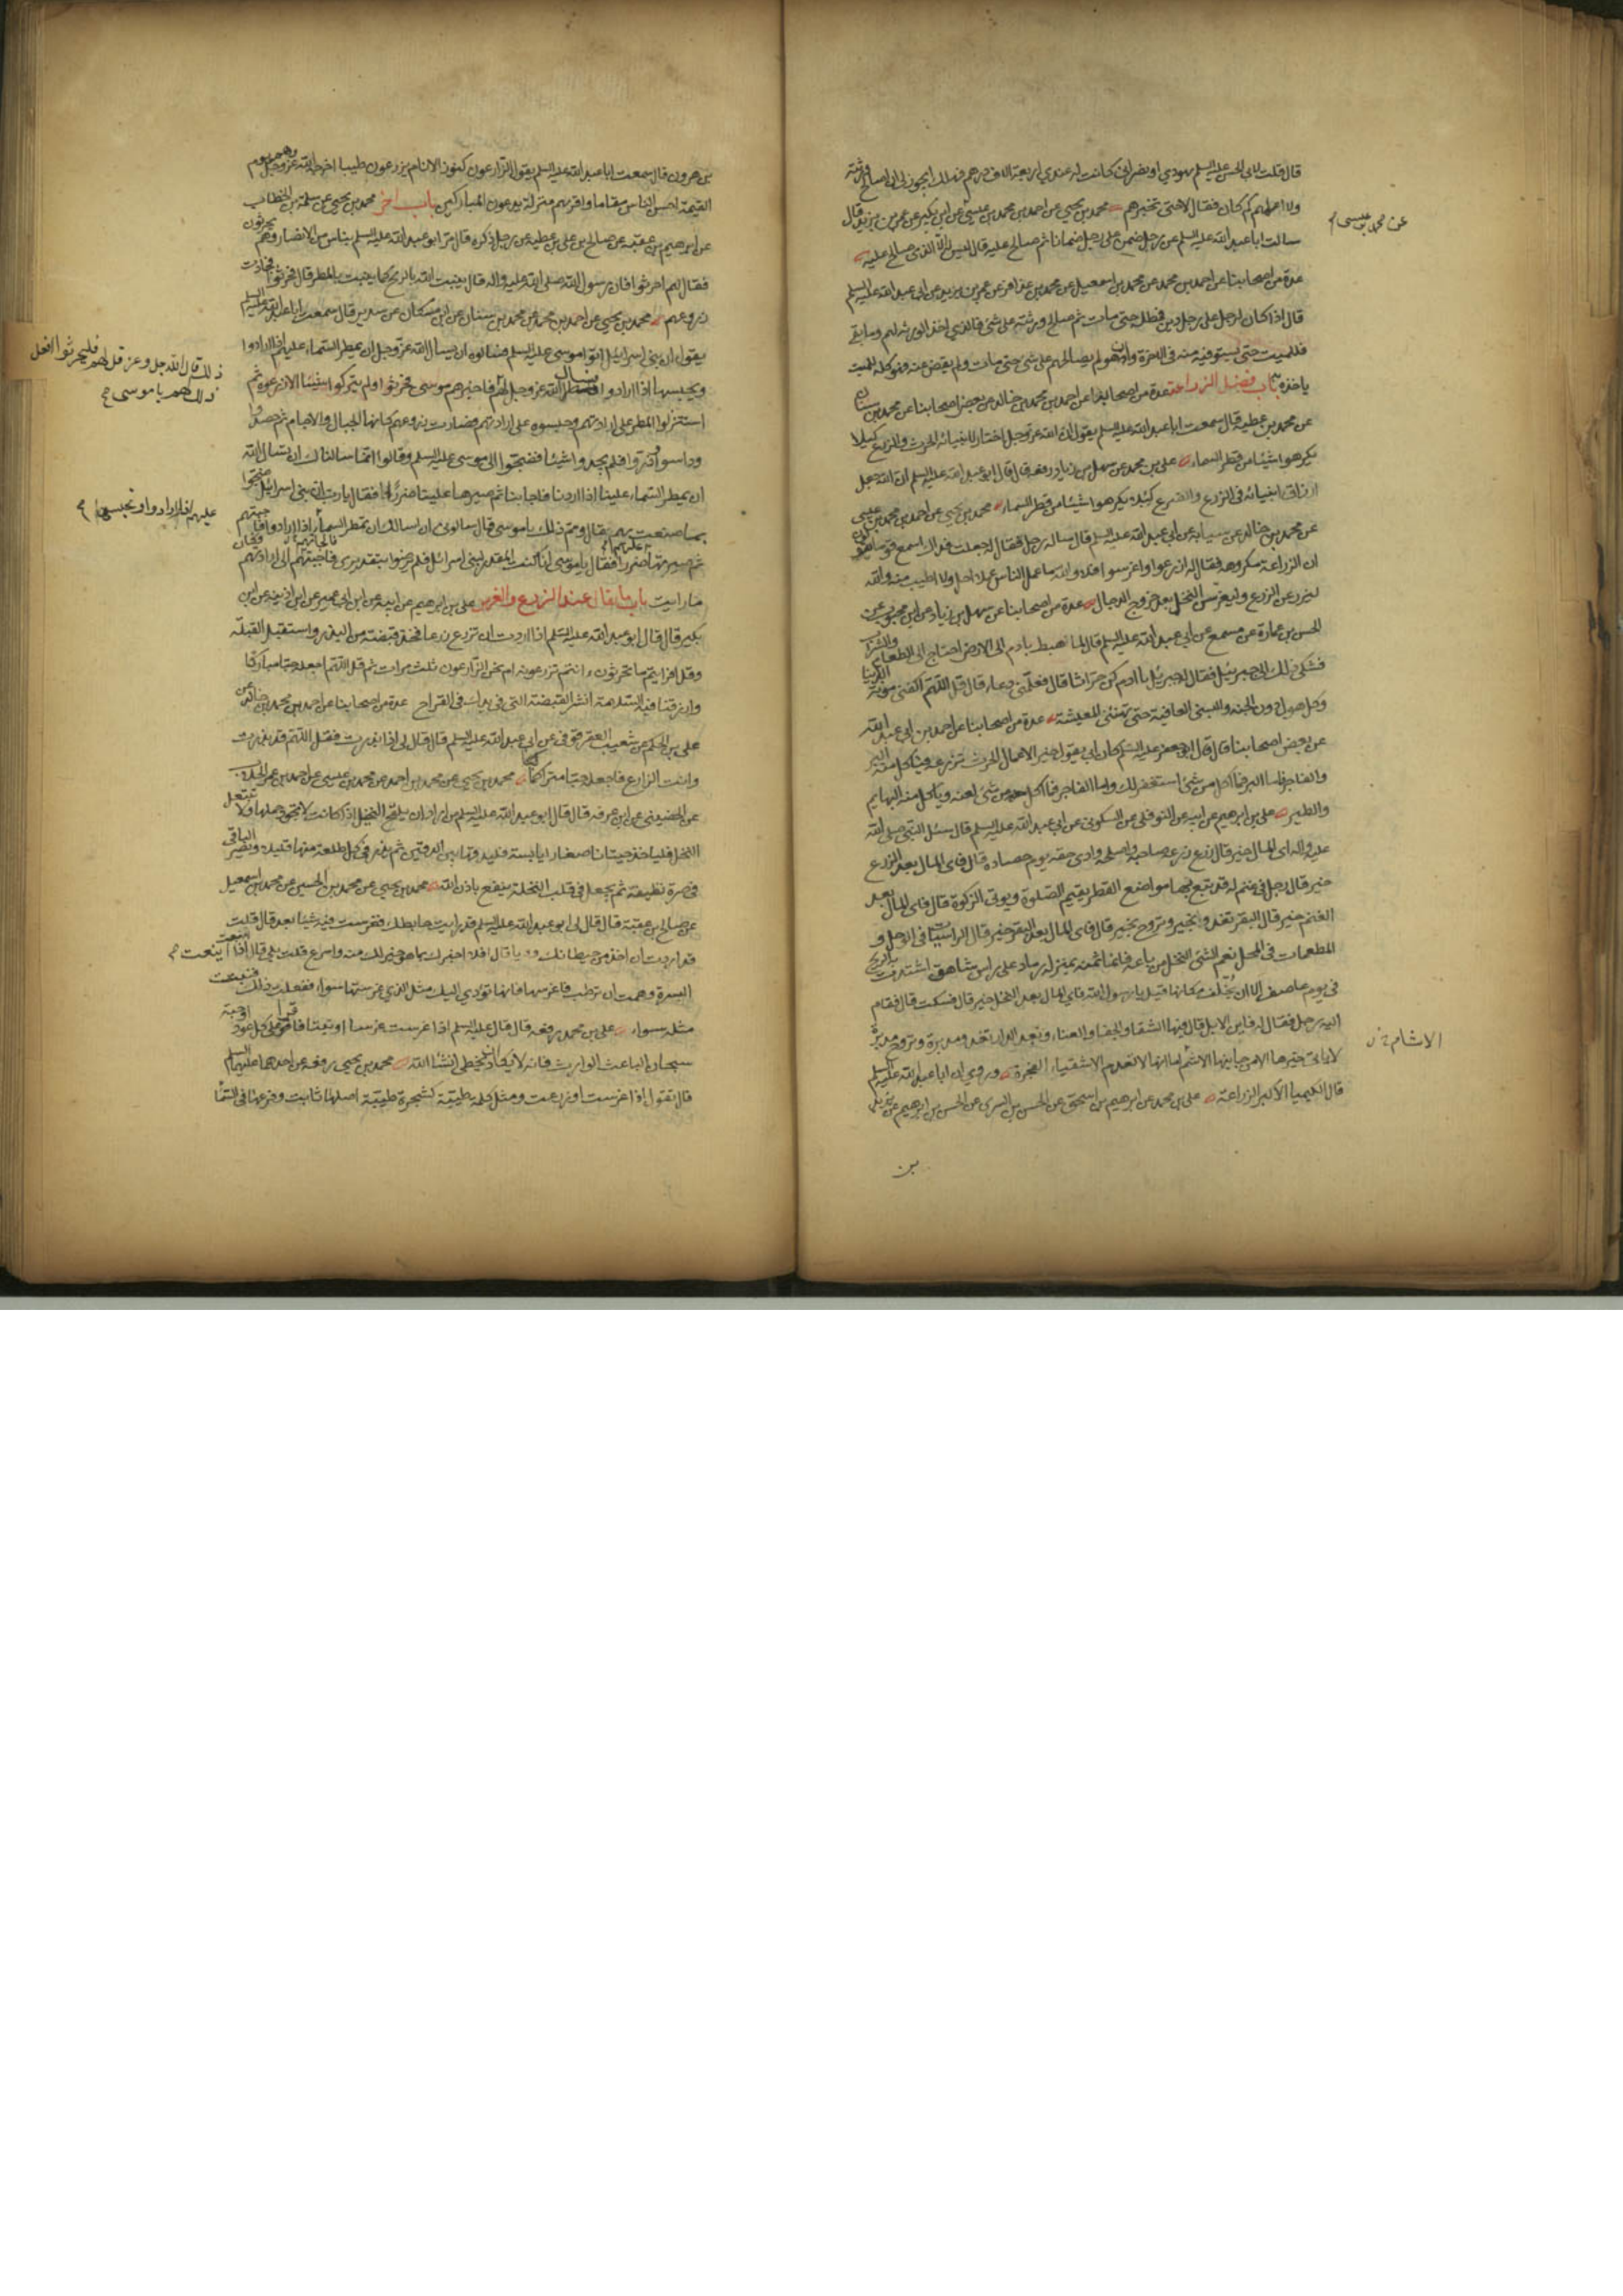 قال قلت لابي الحسن عليه السلم يهودي او نصراني كانت له عندي اربعة الاف درهم فهلك ايجوز لي ان اصالح ورثته
ولا اعلمهم كم كان فقال لا حتى تخبرهم محمد بن يحيى عن احمد بن محمد بن عيسى عن ابن بكير عن عمر بن يزيد قال
عن محمد بن عيسى
سالت ابا عبد الله عليه السلم عن رجل ضمن على رجل ضمانا ثم صالح عليه قال ليس له الا الذي صالح عليه
عدة من اصحابنا عن احمد بن محمد عن محمد بن اسمعيل عن محمد بن عذافر عن عمر بن يزيد عن ابي عبد الله عليه السلم
قال اذا كان لرجل على رجل دين فمطله حتى مات ثم صالح ورثته على شئ فالذي اخذ الورثه لهم وما بقي
فللميت حتى يستوفيه منه في الاخرة وان هو لم يصالحهم على شئ حتى مات ولم يقض عنه فهو كله للميت
ياخذه به باب فضل الزراعة عدة من اصحابنا عن احمد بن محمد بن خالد عن بعض اصحابنا عن محمد بن سنان
عن محمد بن عطية قال سمعت ابا عبد الله عليه السلم يقول ان الله عز وجل اختار لانبيائه الحرث والزرع كيلا
يكرهوا شيئا من قطر السماء علي بن محمد عن سهل بن زياد رفعه قال قال ابو عبد الله عليه السلم ان الله جعل
ارزاق انبيائه في الزرع والضرع كيلا يكرهوا شيئا من قطر السماء محمد بن يحيى عن احمد بن محمد بن عيسى
عن محمد بن خالد عن سيابة عن ابي عبد الله عليه السلم قال ساله رجل فقال له جعلت فداك اسمع قوما يقولون
ان الزراعة مكروهة فقال له ازرعوا واغرسوا فلا والله ما عمل الناس عملا احل ولا اطيب منه والله
ليزرعن الزرع وليغرسن النخل بعد خروج الدجال عدة من اصحابنا عن سهل بن زياد عن ابن محبوب عن
الحسن بن عمارة عن مسمع عن ابي عبد الله عليه السلم قال لما هبط بادم الى الارض احتاج الى الطعام والشراب
فشكى ذلك الى جبرئيل فقال له جبرئيل يا ادم كن حراثا قال فعلمني دعاء قال قل اللهم اكفني مؤنة الدنيا
وكل هول دون الجنة والبسني العافية حتى تهنئني المعيشة عدة من اصحابنا عن احمد بن ابي عبد الله
عن بعض اصحابنا قال قال ابو جعفر عليه السلم كان ابي يقول خير الاعمال الحرث تزرعه فياكل منه البر
والفاجر فاما البر فما اكل من شئ استغفر لك واما الفاجر فما اكل منه من شئ لعنه وياكل منه البهايم
والطير علي بن ابرهيم عن ابيه عن النوفلي عن السكوني عن ابي عبد الله عليه السلم قال سئل النبي صلى الله
عليه واله اي المال خير قال زرع زرعه صاحبه واصلحه وادى حقه يوم حصاده قال فاي المال بعد الزرع
خير قال رجل في غنم له قد تبع بها مواضع القطر يقيم الصلوة ويؤتي الزكوة قال فاي المال بعد
الغنم خير قال البقر تغدوا بخير وتروح بخير قال فاي المال بعد البقر خير قال الراسيات في الوحل و
المطعمات في المحل نعم الشئ النخل من باعه فانما ثمنه بمنزلة رماد على راس شاهق اشتدت به الريح
في يوم عاصف الا ان يخلف مكانها قيل يا رسول الله فاي المال بعد النخل خير قال فسكت قال فقام
اليه رجل فقال له فاين الابل قال فيها الشقاء والجفاء والعناء وبعد الدار تغدو مدبرة وتروح مدبرة
لا ياتي خيرها الا من جانبها الاشئم اما انها لا تعدم الاشقياء الفجرة وروي ان ابا عبد الله عليه السلم
الاشام
قال الكيمياء الاكبر الزراعة علي بن محمد عن ابرهيم بن اسحق عن الحسن بن السري عن الحسن بن ابرهيم عن يزيد
بن
بن هرون قال سمعت ابا عبد الله عليه السلم يقول الزارعون كنوز الانام يزرعون طيبا اخرجه الله عز وجل وهم يوم
القيمة احسن الناس مقاما واقربهم منزلة يدعون المباركين باب اخر محمد بن يحيى عن سلمة بن الخطاب
عن ابرهيم بن عقبه عن صالح بن علي بن عطية عن رجل ذكره قال مر ابو عبد الله عليه السلم بناس من الانصار وهم يحرثون
فقال لهم احرثوا فان رسول الله صلى الله عليه واله قال ينبت الله بالريح كما ينبت بالمطر قال فحرثوا فجادت
زروعهم محمد بن يحيى عن احمد بن محمد عن محمد بن سنان عن ابن مسكان عن سدير قال سمعت ابا عبد الله عليه السلم
يقول ان بني اسرائيل اتوا موسى عليه السلم فسالوه ان يسال الله عز وجل ان يمطر السماء عليهم اذا ارادوا
ذلك قال الله جل وعز قل لهم فليحرثوا
ذلك لهم يا موسى
ويحبسها اذا ارادوا فسال الله عز وجل لهم فاخبرهم موسى فحرثوا ولم يتركوا شيئا الا زرعوه ثم
استنزلوا المطر على ارادتهم وحبسوه على ارادتهم فصارت زروعهم كانها الجبال والاجام ثم حصدوا
وداسوا وذروا فلم يجدوا شيئا فضجوا الى موسى عليه السلم وقالوا انما سالناك ان تسال الله
ان يمطر السماء علينا اذا اردنا فاجابنا ثم صيرها علينا ضررا فقال يارب ان بني اسرائيل ضجوا
مما صنعت بهم فقال ومم ذلك يا موسى قال سالوني ان اسالك ان تمطر السماء اذا ارادوا فاجبتهم
عليهم اذا ارادوا وتحبسها
ثم صيرتها عليهم ضررا فقال يا موسى انا كنت المقدر لبني اسرائيل فلم يرضوا بتقديري فاجبتهم الى ارادتهم فكان
ما رايت باب ما يقال عند الزرع والغرس علي بن ابرهيم عن ابيه عن ابن ابي عمير عن ابن اذينه عن ابن
بكير قال قال ابو عبد الله عليه السلم اذا اردت ان تزرع زرعا فخذ قبضة من البذر واستقبل القبلة
وقل افرايتم ما تحرثون ءانتم تزرعونه ام نحن الزارعون ثلث مرات ثم قل اللهم اجعله حبا مباركا
وارزقنا فيه السلامة ثم انثر القبضة التي في يدك في القراح عدة من اصحابنا عن احمد بن محمد بن خالد عن
علي بن الحكم عن شعيب العقرقوفي عن ابي عبد الله عليه السلم قال قال لي اذا بذرت فقل اللهم قد بذرت
وانت الزارع فاجعله حبا متراكما محمد بن يحيى عن محمد بن احمد عن محمد بن عيسى عن احمد بن عمر الجلاب
عن الحضيني عن ابن عرفه قال قال ابو عبد الله عليه السلم من اراد ان يلقح النخيل اذا كانت لا يجود حملها ولا يتبعل
النخل فلياخذ حيتانا صغارا يابسة فليدقها بين الدقين ثم يذر في كل طلعة منها قليلا ويصر الباقي
في صرة نظيفة ثم يجعل في قلب النخلة ينفع باذن الله محمد بن يحيى عن محمد بن الحسين عن محمد بن اسمعيل
عن صالح بن عقبة قال قال لي ابو عبد الله عليه السلم قد رايت حايطك فغرست فيه شيئا بعد قال قلت
قد اردت ان اخذ من حيطانك وديا قال افلا اخبرك بما هو خير لك منه واسرع قلت بلى قال اذا اينعت
البسرة وهمت ان ترطب فاغرسها فانها تؤدي اليك مثل الذي غرستها سواء ففعلت ذلك فنبتت
مثله سواء علي بن محمد رفعه قال قال عليه السلم اذا غرست غرسا او نبتا فاقرا على كل عود او حبة
سبحان الباعث الوارث فانه لا يكاد يخطي ان شاء الله محمد بن يحيى رفعه عن احدهما عليهما السلم
قال تقول اذا غرست او زرعت ومثل كلمة طيبة كشجرة طيبة اصلها ثابت وفرعها في السماء